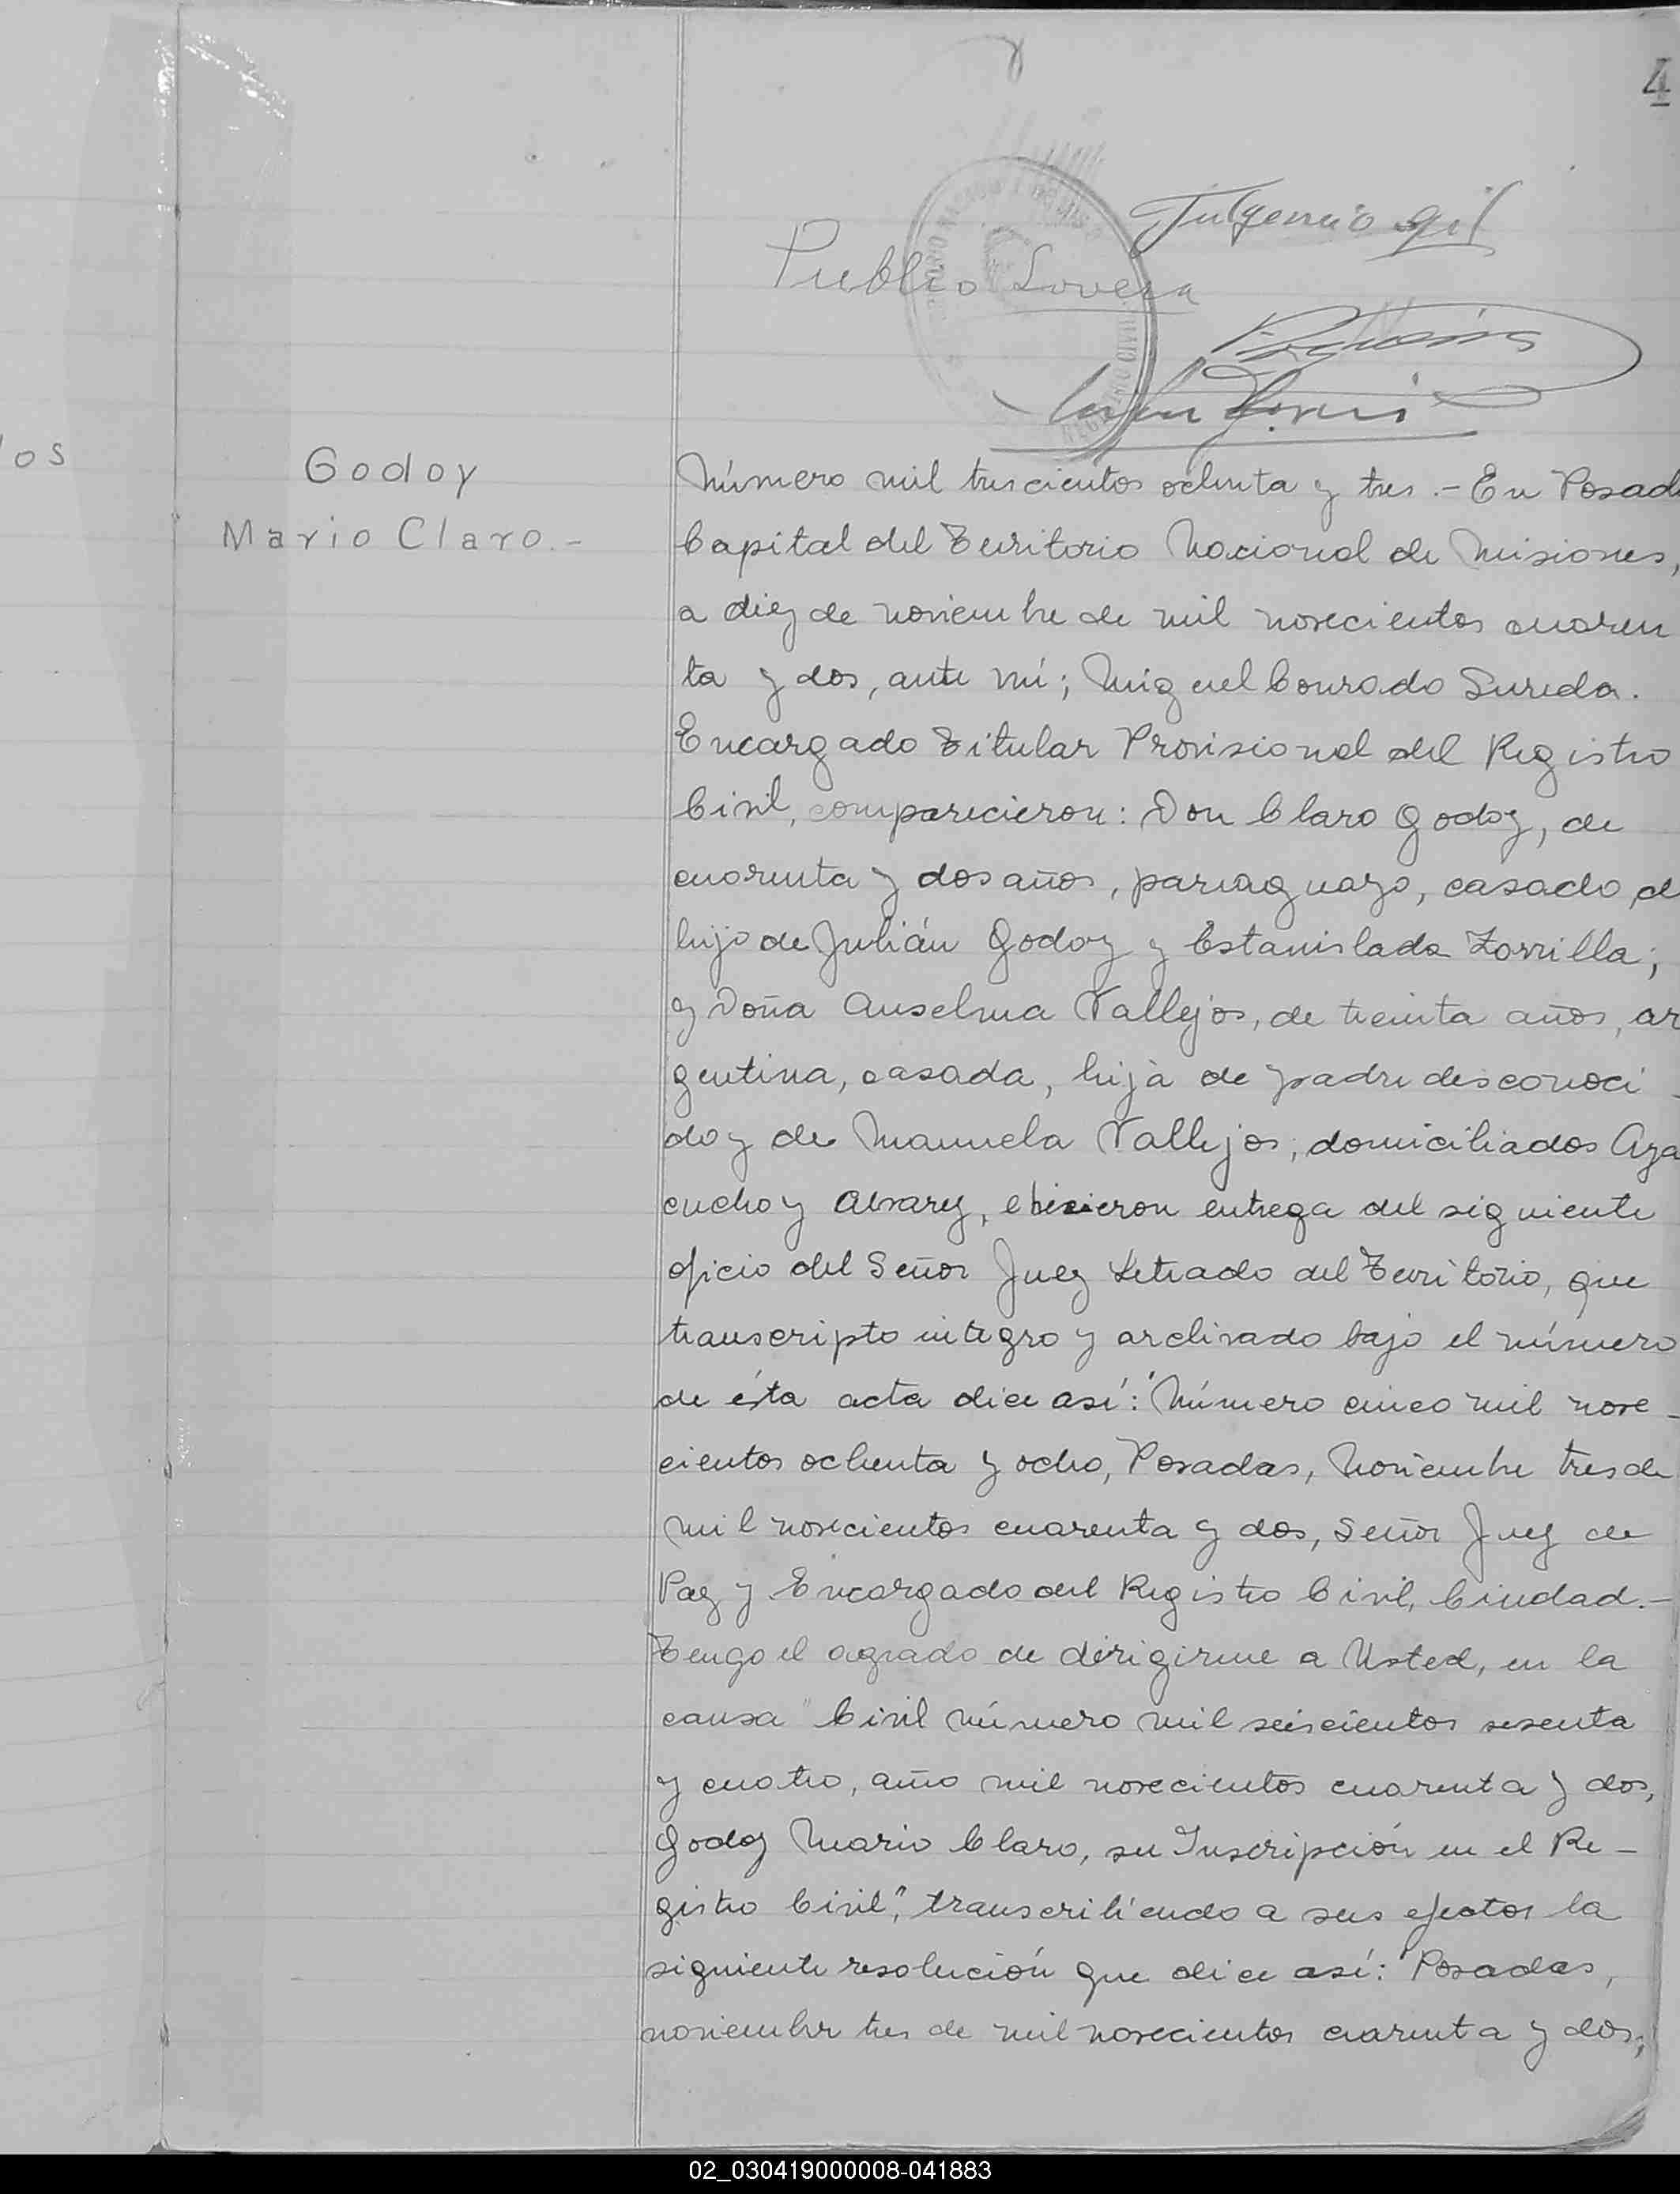 4
Fulgencio Gil
Publio Lovera
los
Godoy
Mario Claro.-
Número mil trescientos ochenta y tres.- En Posad
Capital del Territorio Nacional de Misiones,
a diez de noviembre de mil novecientos cuaren
ta y dos, ante mí; Miguel Conrado Sureda.
Encargado Titular Provisional del Registro
Civil, comparecieron: Don Claro Godoy, de
cuarenta y dos años, paraguayo, casado, d
hijo de Julián Godoy y Estanislada Zorrilla;
y Doña Anselma Vallejos, de treinta años, ar
gentina, casada, hija de padre desconoci
do y de Manuela Vallejos; domiciliados Aya
cucho y Alvarez, e hicieron entrega del siguiente
oficio del Señor Juez Letrado del Territorio, que
transcripto integro y archivado bajo el número
de ésta acta dice así: "Número cinco mil nove-
cientos ochenta y ocho, Posadas, Noviembre tres de
mil novecientos cuarenta y dos, Señor Juez de
Paz y Encargado del Registro Civil, Ciudad.-
Tengo el agrado de dirigirme a Usted, en la
causa "Civil número mil seiscientos sesenta
y cuatro, año mil novecientos cuarenta y dos,
Godoy Mario Claro, su Inscripción en el Re-
gistro Civil", transcribiendo a sus efectos la
siguiente resolución que dice así: "Posadas,
noviembre tres de mil novecientos cuarenta y dos;
02_030419000008-041883